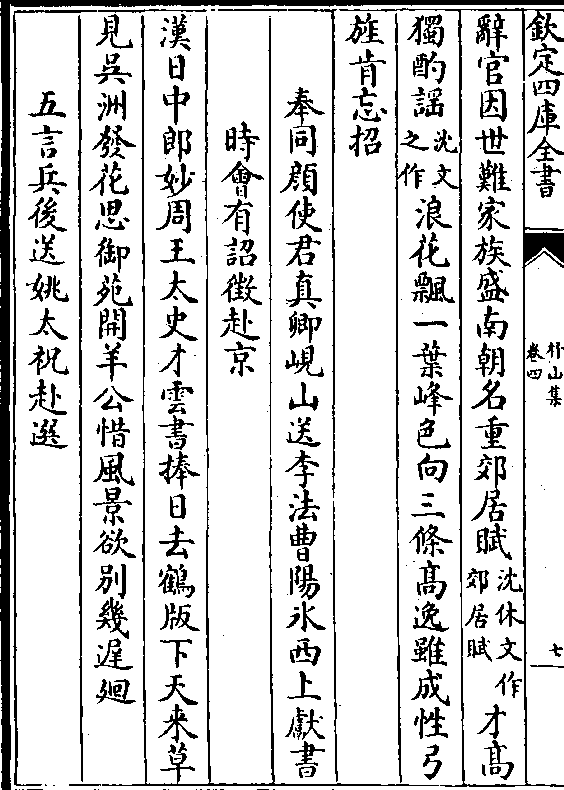 欽定四庫全書
杼山集
卷四
七
辭官因世難家族盛南朝名重郊居賦沈休文作郊居賦才髙
獨酌謡沈文之作浪花飄一葉峰色向三條髙逸雖成性弓
旌肯忘招
奉同顔使君真卿峴山送李法曹陽氷西上獻書
時會有詔徴赴京
漢日中郎妙周王太史才雲書捧日去鶴版下天来草
見吳洲發花思御苑開羊公惜風景欲别幾遲廻
五言兵後送姚太祝赴選